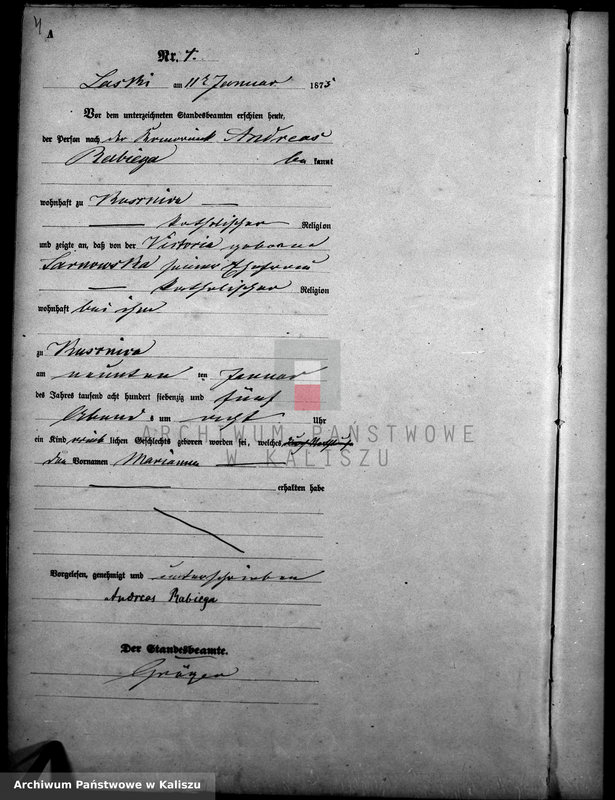 A
Nr. 7.
Laski am 11t Januar 1875
Vor dem unterzeichneten Standesbeamten erschien heute,
der Person nach der Andreas
Rabiega bekannt
wohnhaft zu Kusznica
katholischer Religion
und zeigte an, daß von der Victoria geborene
Sarnowska seiner Ehefrau
katholischer Religion
wohnhaft bei ihm
zu Kusznica
am neunten ten Januar
des Jahres tausend acht hundert siebenzig und fünf
Abends um acht Uhr
ein Kind weiblichen Geschlechts geboren worden sei, welches
den Vornamen Marianna
erhalten habe
Vorgelesen, genehmigt und unterschrieben
Andreas Rabiega
Der Standesbeamte.
ARCHIWUM PAŃSTWOWE
W KALISZU
Archiwum Państwowe w Kaliszu